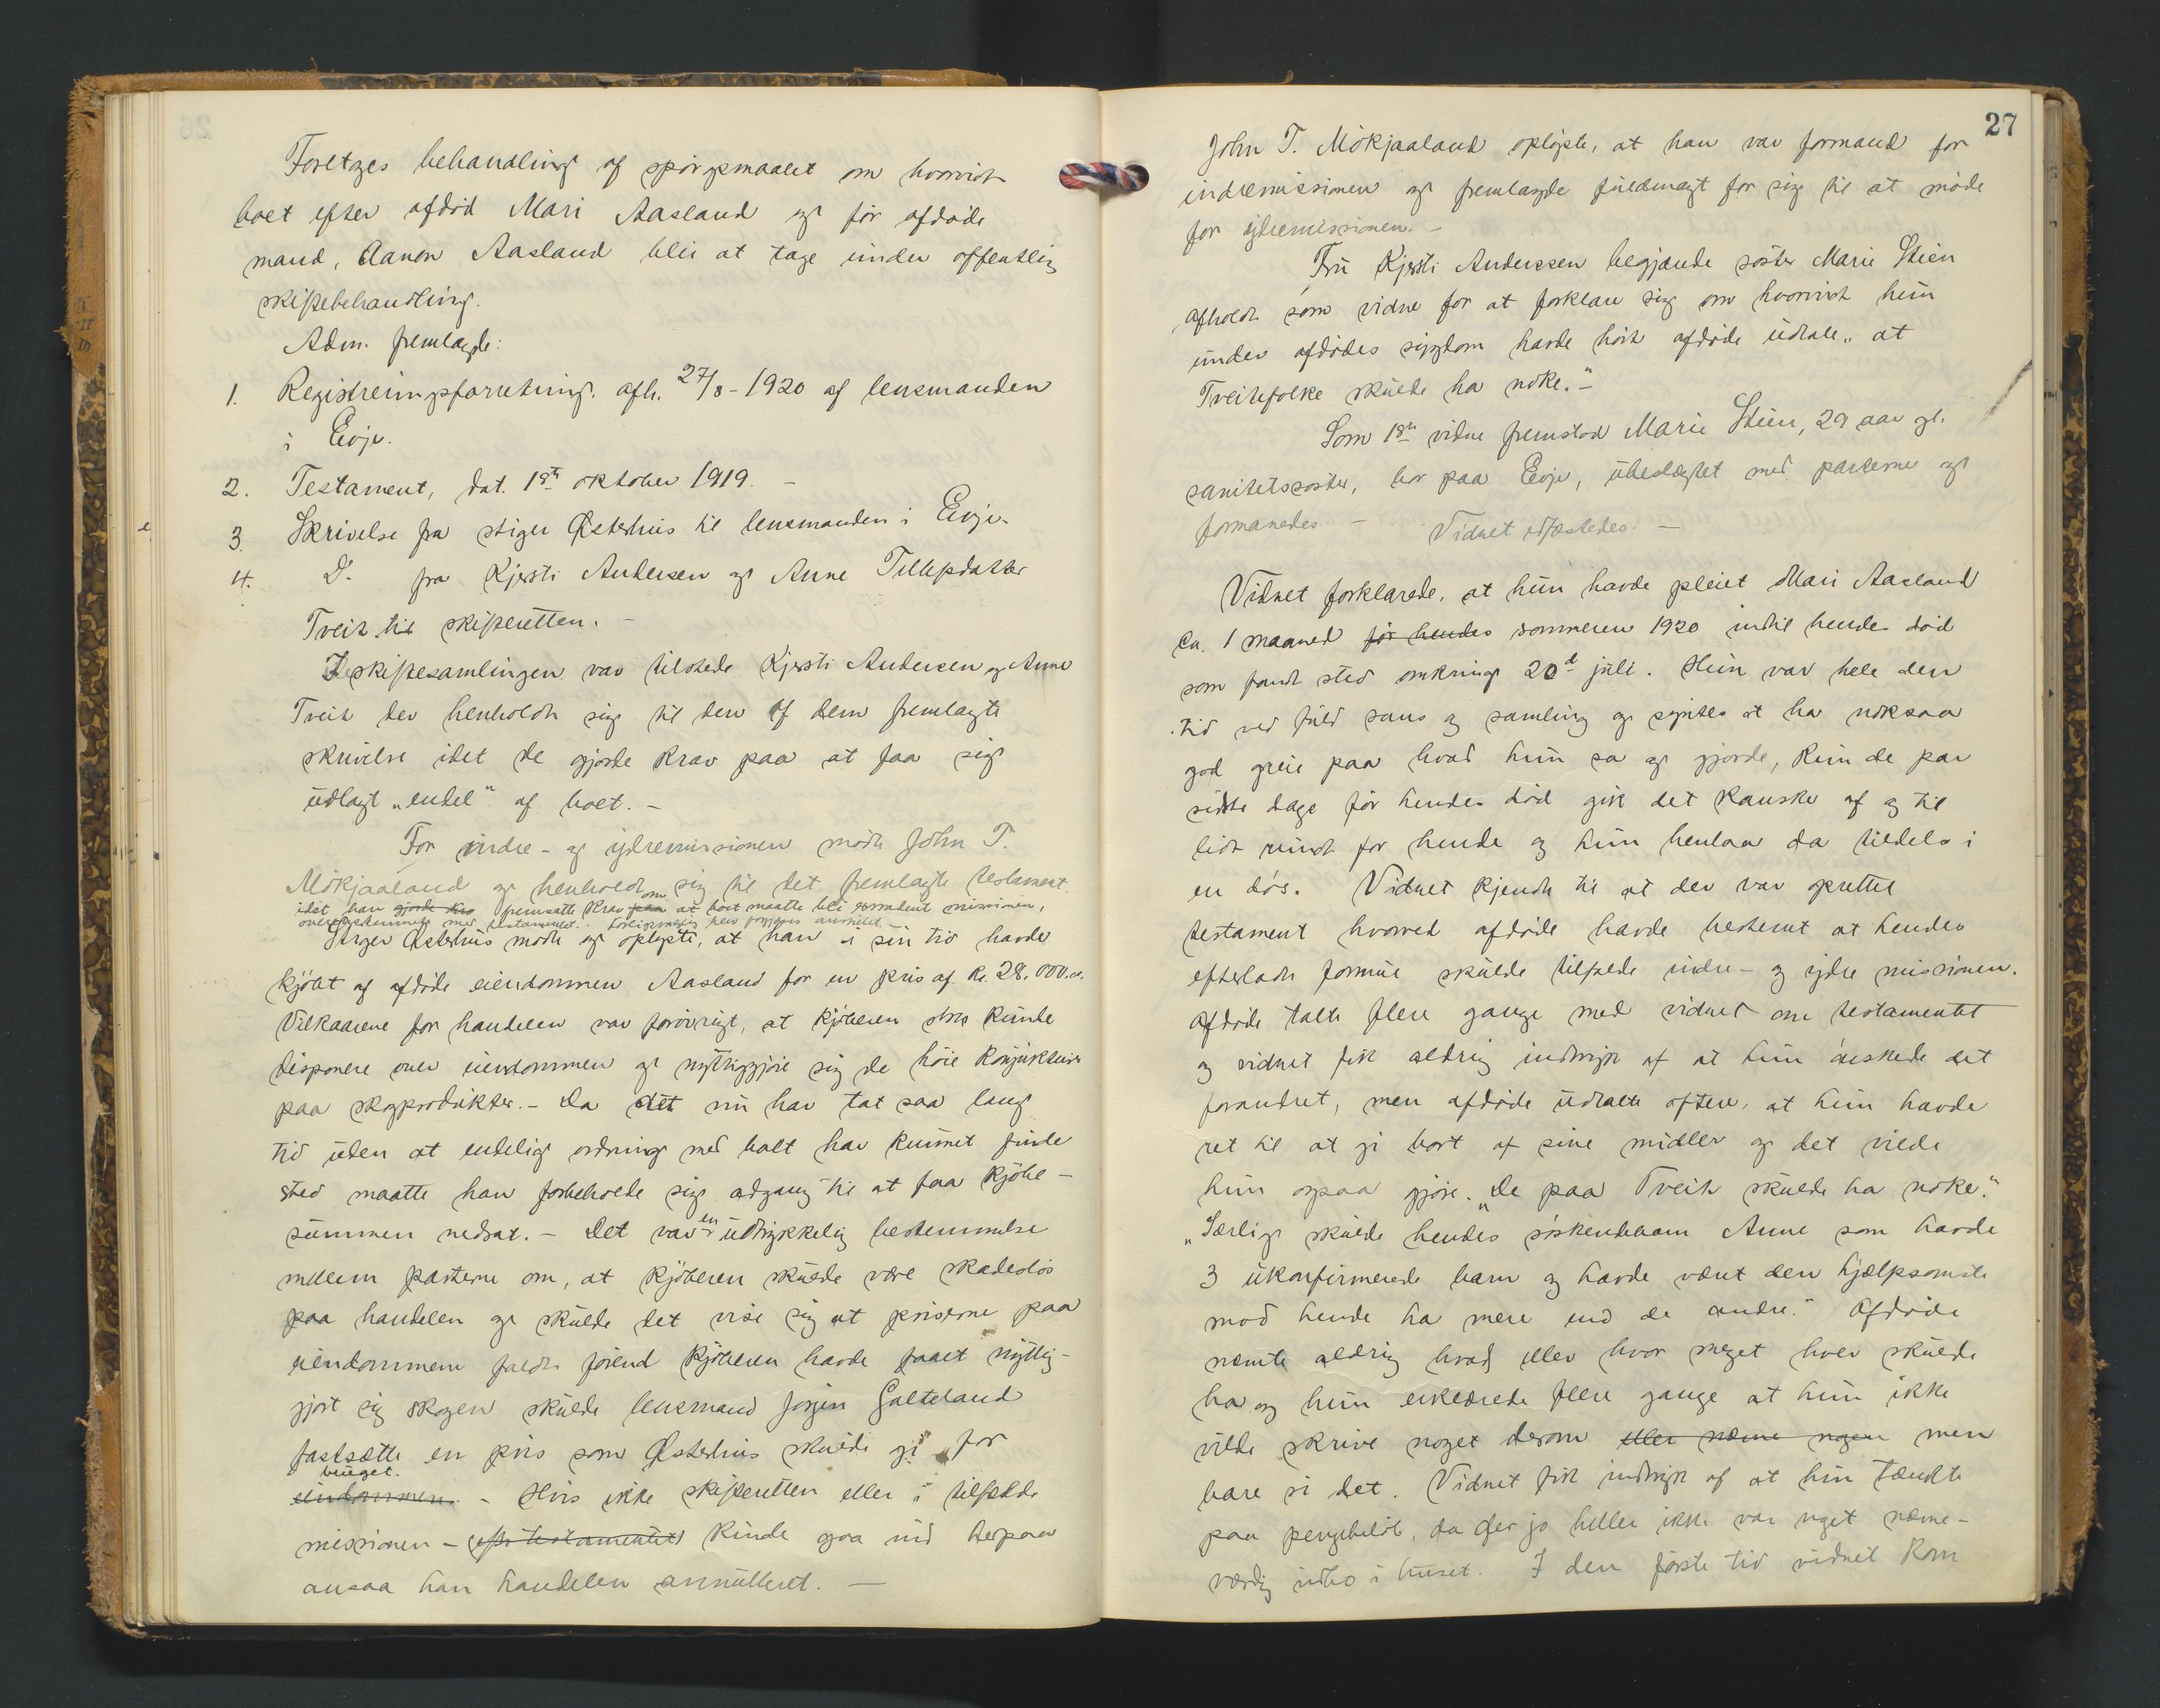 Foretages behandling af spørgsmaalet om hvorvidt
boet efter afdød Mari Aasland og før afdøde
mand, Aanon Aasland blir at tage under offentlig
skiftebehandling.
Adm. fremlagde:
1. Registreringsforretning afh. 27/8-1920 af lensmanden
i Evje.
2. Testament, dat. 1ste oktober 1919. -
3. Skrivelse fra stiger Østerhus til lensmanden i Evje.
4. D. fra Kjersti Andersen og Anne Tellefsdatter
Treit til skifteretten. -
I skiftesamlingen var tilstede Kjersti Andersen og Anne
Treit der henholdt sig til den af dem fremlagte
skrivelse idet de gjorde krav paa at faa sig
udlagt "endel" af boet. -
For indre- og ydremissionen mødte John T.
Mökjaaland og henholdt sig til det fremlagte testament.
idet han gjorde kra fremsatte krav paa om at boet maatte bli extradert missionen,
overensstemmende med testamentet.
Stiger Østerhus mødte og oplyste, at han i sin tid havde
kjöbt af afdöde eiendommen Aasland for en pris af Kr. 28.000.00.
Vilkaarene for handelen var forövrigt, at kjöberen straks kunde
disponere over eiendommen og nyttiggjöre sig de höie konjunkturer
paa skogprodukter. - Da det nu har tat saa lang
tid uden at endelig ordning med boet har kunnet finde
sted maatte han forbeholde sig adgang til at faa kjöbe-
summen nedsat. - Det var en udtrykkelig bestemmelse
mellem parterne om, at kjöberen skulde være skadeslös
paa handelen og skulde det vise sig at priserne paa
eiendommene faldt förend kjöberen havde faaet nyttig-
gjort sig skogen skulde lensmand Jørgen Galteland
fastsætte en pris som Østerhus skulde gi for
bruget.
eiendommen. - Hvis ikke skifteretten eller i tilfælde
missionen - (efter testamentet) kunde gaa ind herpaa
ansaa han handelen annulleret. -
27
John T. Mökjaaland oplyste, at han var formand for
indremissionen og fremlagde fuldmagt for sig til at möde
for ydremissionen. -
Fru Kjersti Anderssen begjærede söster Marie Stien
afholdt som vidne for at forklare sig om hvorvidt hun
under afdödes sygdom havde hört afdöde udtale "at
Treitefolke skulde ha noke." -
Som 1ste vidne fremstod Marie Stien, 29 aar gl.
sanitetssöster, bor paa Evje, ubeslægtet med parterne og
formanedes. - Vidnet edfæstedes. -
Vidnet forklarede, at hun havde pleiet Mari Aasland
ca. 1 maaned før hendes sommeren 1920 indtil hendes död
som fandt sted omkring 20de juli. Hun var hele den
tid ved fuld sans og samling og syntes at ha noksaa
god greie paa hvad hun sa og gjorde, kun de par
sidste dage för hendes död gik det kanske af og til
lidt rundt for hende og hun henlaa da tildels i
en dös. Vidnet kjendte til at der var oprettet
testament hvorved afdöde havde bestemt at hendes
efterladte formue skulde tilfalde indre- og ydre missionen.
Afdöde talte flere gange med vidnet om testamentet
og vidnet fik aldrig indtryk af at hun önskede det
forandret, men afdöde udtalte oftere, at hun havde
ret til at gi bort af sine midler og det vilde
hun ogsaa gjöre. "De paa Treit skulde ha noke."
"Særlig skulde hendes söskendebarn Anne som havde
3 ukonfirmerede barn og havde vært den hjælpsomste
mod hende ha mere end de andre." Afdöde
nævnte aldrig hvad eller hvor meget hver skulde
ha og hun erklærede flere gange at hun ikke
vilde skrive noget derom eller nævne nogen men
bare si det. Vidnet fik indtryk af at hun tænkte
paa pengebelöb, da der jo heller ikke var noget nævne-
værdig indbo i huset. I den förste tid vidnet kom